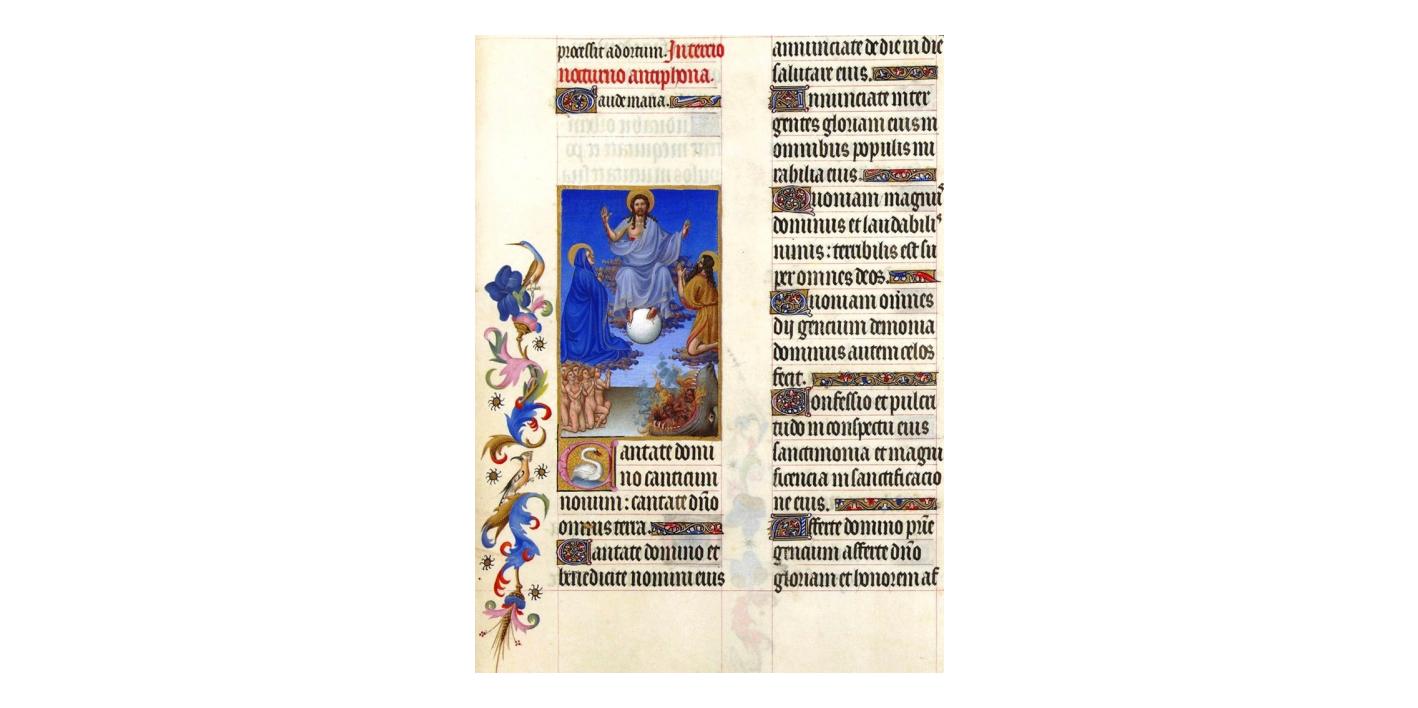 processit ad ortum. In tercio
nocturno antiphona.
Gaude maria.
Cantate domi
no canticum
novum: cantate dño
omnis terra.
Cantate domino et
benedicite nomini eius
annunciate de die in die
salutare eius.
Annunciate inter
gentes gloriam eius in
omnibus populis mi
rabilia eius.
Quoniam magnus
dominus et laudabilis
nimis: terribilis est su
per omnes deos.
Quoniam omnes
dij gencium demonia
dominus autem celos
fecit.
Confessio et pulcri
tudo in conspectu eius
sanctimonia et magni
ficencia in sanctificacio
ne eius.
Afferte domino prie
gencium afferte dño
gloriam et honorem af